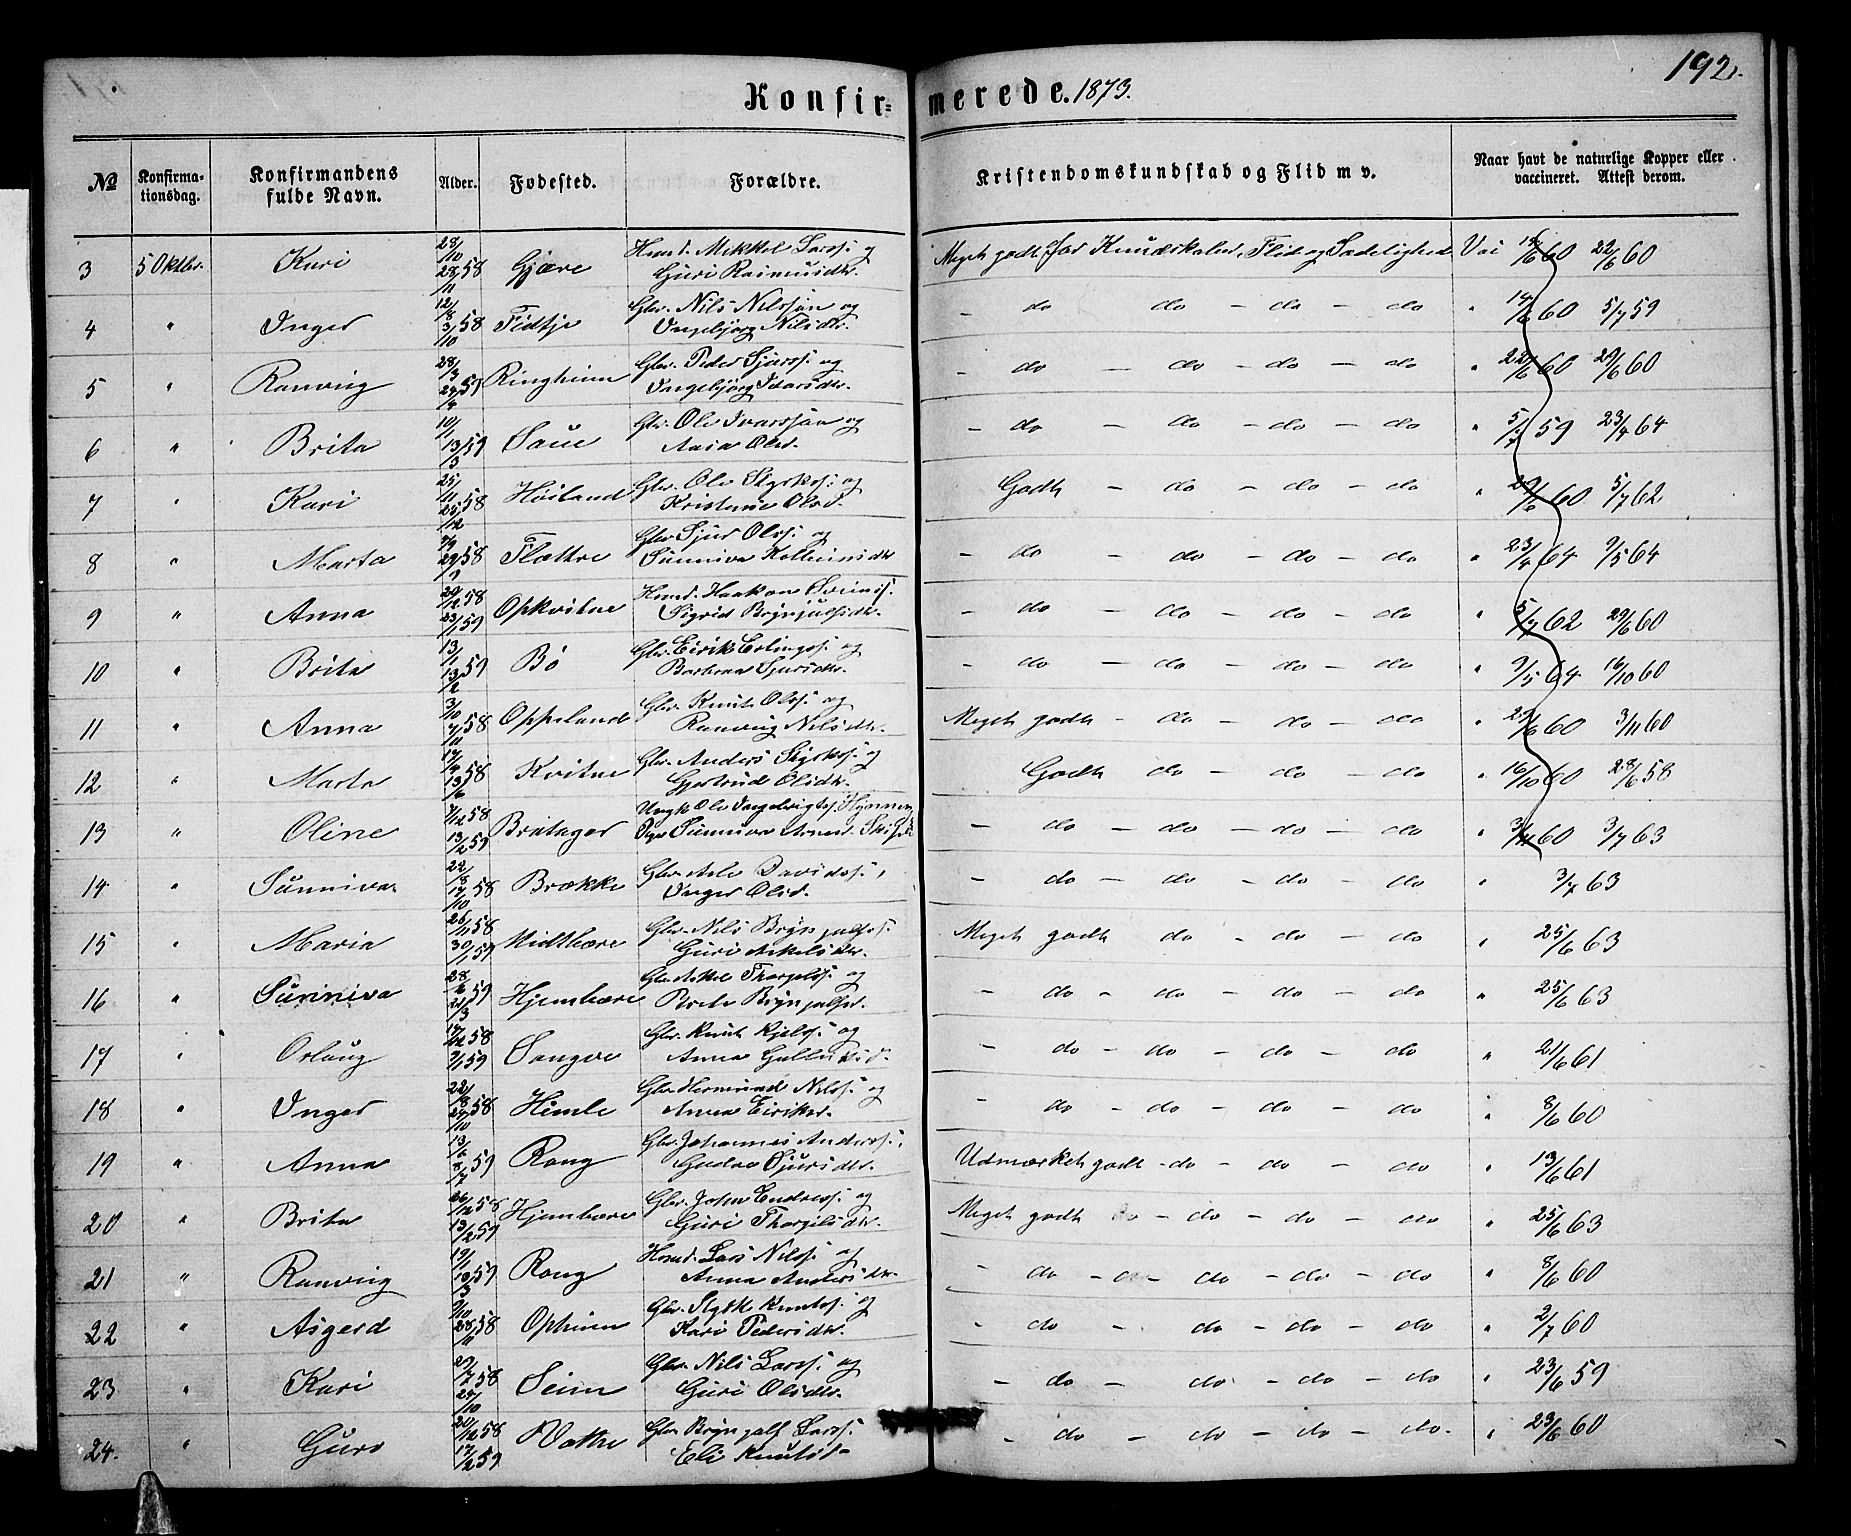 192.
Konfir= merede. 1873.
No Konfirma-tionsdag. Konfirmandens fulde Navn. Alder. Fodested. Forældre. Kristendomskundskab og Flid m v. Naar havt de naturlige Kopper eller vaccineret. Attest derom.
3 5 Oktbr. Kari 28/10 28/11 58 Gjære Hmd. Mikkel Larss. og Guri Rasmusdtr. Meget godt for Kundskaber, Flid og Sædelighed Vac 60 22/6 60
4 " Inger 12/8 3/10 58 Fidtje Gbr. Nils Nilssøn og Ingebjørg Nilsdtr. - do do - do - do " 60 5/7 59
5 " Ranveig 28/3 24/4 59 Ringheim Gbr. Peder Sjurss. og Ingebjørg Ivarsdtr. - do - do - do - do " 22/6 60 29/6 60
6 " Brita 10/1 13/3 59 Saue Gbr. Ole Ivarssøn og Olsd. - do - do - do - do " 5/7 59 23/4 64
7 " Kari 25/11 25/12 58 Høiland Gbr. Ole Styrks. og Kristense Olsd. Godt - do - do - do " 29/6 60 5/7 62
8 " Marta 9/9 29/9 58 Flattre Gbr. Sjur Olss. og Sunniva Kolbeinsdtr - do - do - do - do " 23/4 64 9/5 64
9 " Anna 29/12 58 23/1 59 Opkvitne Hmd. Haakon Sveins. Sigrid Brynjulfsdtr. - do - do - do - do " 5/7 62 29/6 60
10 " Brita 13/1 13/2 59 Bø Gbr. Eirik Erlings. og Barbra Sjursdtr. - do - do - do - do " 9/5 64 16/10 60
11 " Anna 3/10 9/11 58 Oppeland Gbr. Knut Olss. og Ranveig Nilsdtr. Meget godt - do - do - do " 60 3/11 60
12 " Marta 58 Kvitne Gbr. Anders Styrks. og Gjertrud Olsdtr. Godt do - do - do " 16/10 60 28/6 58
13 " Oline 58 13/2 59 Bratager Ungk. Ole Ingebrigts. Pige Sunniva - do - do - do - do " 3/11 60 3/7 63
14 " Sunniva 22/8 17/10 58 Brække Gbr. Davids. Inger Olsd. - do - do - do - do " 3/7 63
15 " Maria 26/11 58 30/1 59 Midtbære Gbr. Nils Brynjulfs. Guri Askelsdtr. Meget godt do - do - do " 25/6 63
16 " Sunniva 59 Hjembære Gbr. Askel Thorgels. og Brita Brynjulfsd. - do - do - do - do " 25/6 63
17 " Oslaug 58 9/1 59 Sangve Gbr. Knut Kjels. og Anna - do - do - do - do " 21/6 61
18 " Inger 22/8 58 Himle Gbr. Hermund Nilss. og Anna Eiriksd. - do - do - do - do " 8/6 60
19 " Anna 13/6 8/7 59 Rong Gbr. Johannes Anderss. Sjursdtr. Udmærket godt - do - do - do - do " 13/6 61
20 " Brita 26/12 58 13/2 59 Hjembære Gbr. John Endress. og Guri Thorgilsdtr. Meget godt do - do - do - do " 25/6 63
21 " Ranveig 19/1 19/3 59 Rong Hmd. Lars Nilss. og Anna Andersdtr. - do - do - do - do - do " 8/6 60
22 " Asgerd 9/10 28/11 58 Opheim Gbr. Styrk Knuts. og Kari Pedersdtr. - do - do - do - do " 2/7 60
23 " Kari 29/7 58 Seim Gbr. Nils Larss. og Guri Olsdtr. - do - do - do - do " 23/6 59
24. " Guro 20/12 58 17/2 59 Væthe Gbr. Brynjulf Larss. Eli Knutsd. - do - do - do - do. " 23/6 60